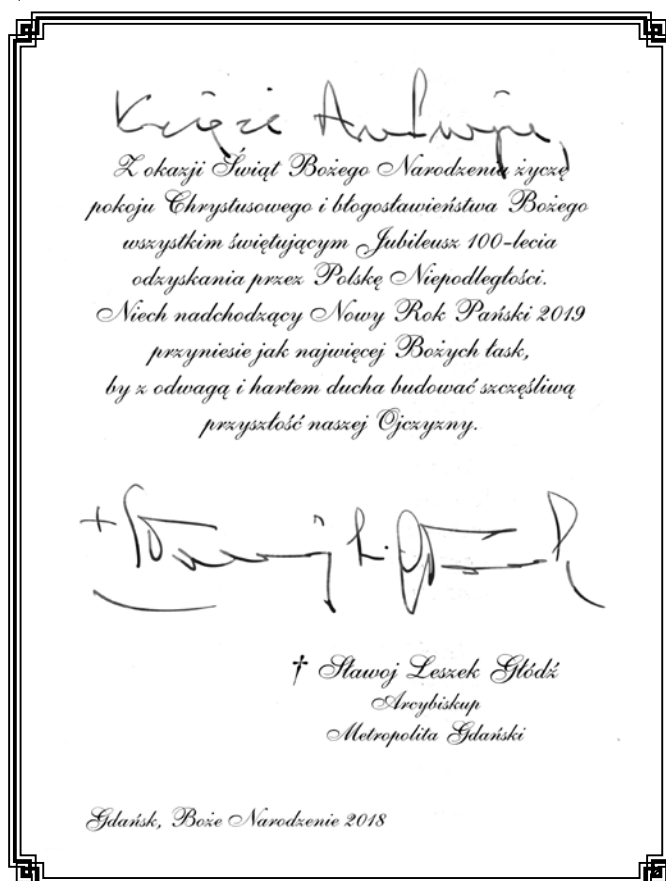 Księże Andrzeju,
Z okazji Świąt Bożego Narodzenia życzę
pokoju Chrystusowego i błogosławieństwa Bożego
wszystkim świętującym Jubileusz 100-lecia
odzyskania przez Polskę Niepodległości.
Niech nadchodzący Nowy Rok Pański 2019
przyniesie jak najwięcej Bożych łask,
by z odwagą i hartem ducha budować szczęśliwą
przyszłość naszej Ojczyzny.
+ Sławoj L. Głódź
† Sławoj Leszek Głódź
Arcybiskup
Metropolita Gdański
Gdańsk, Boże Narodzenie 2018